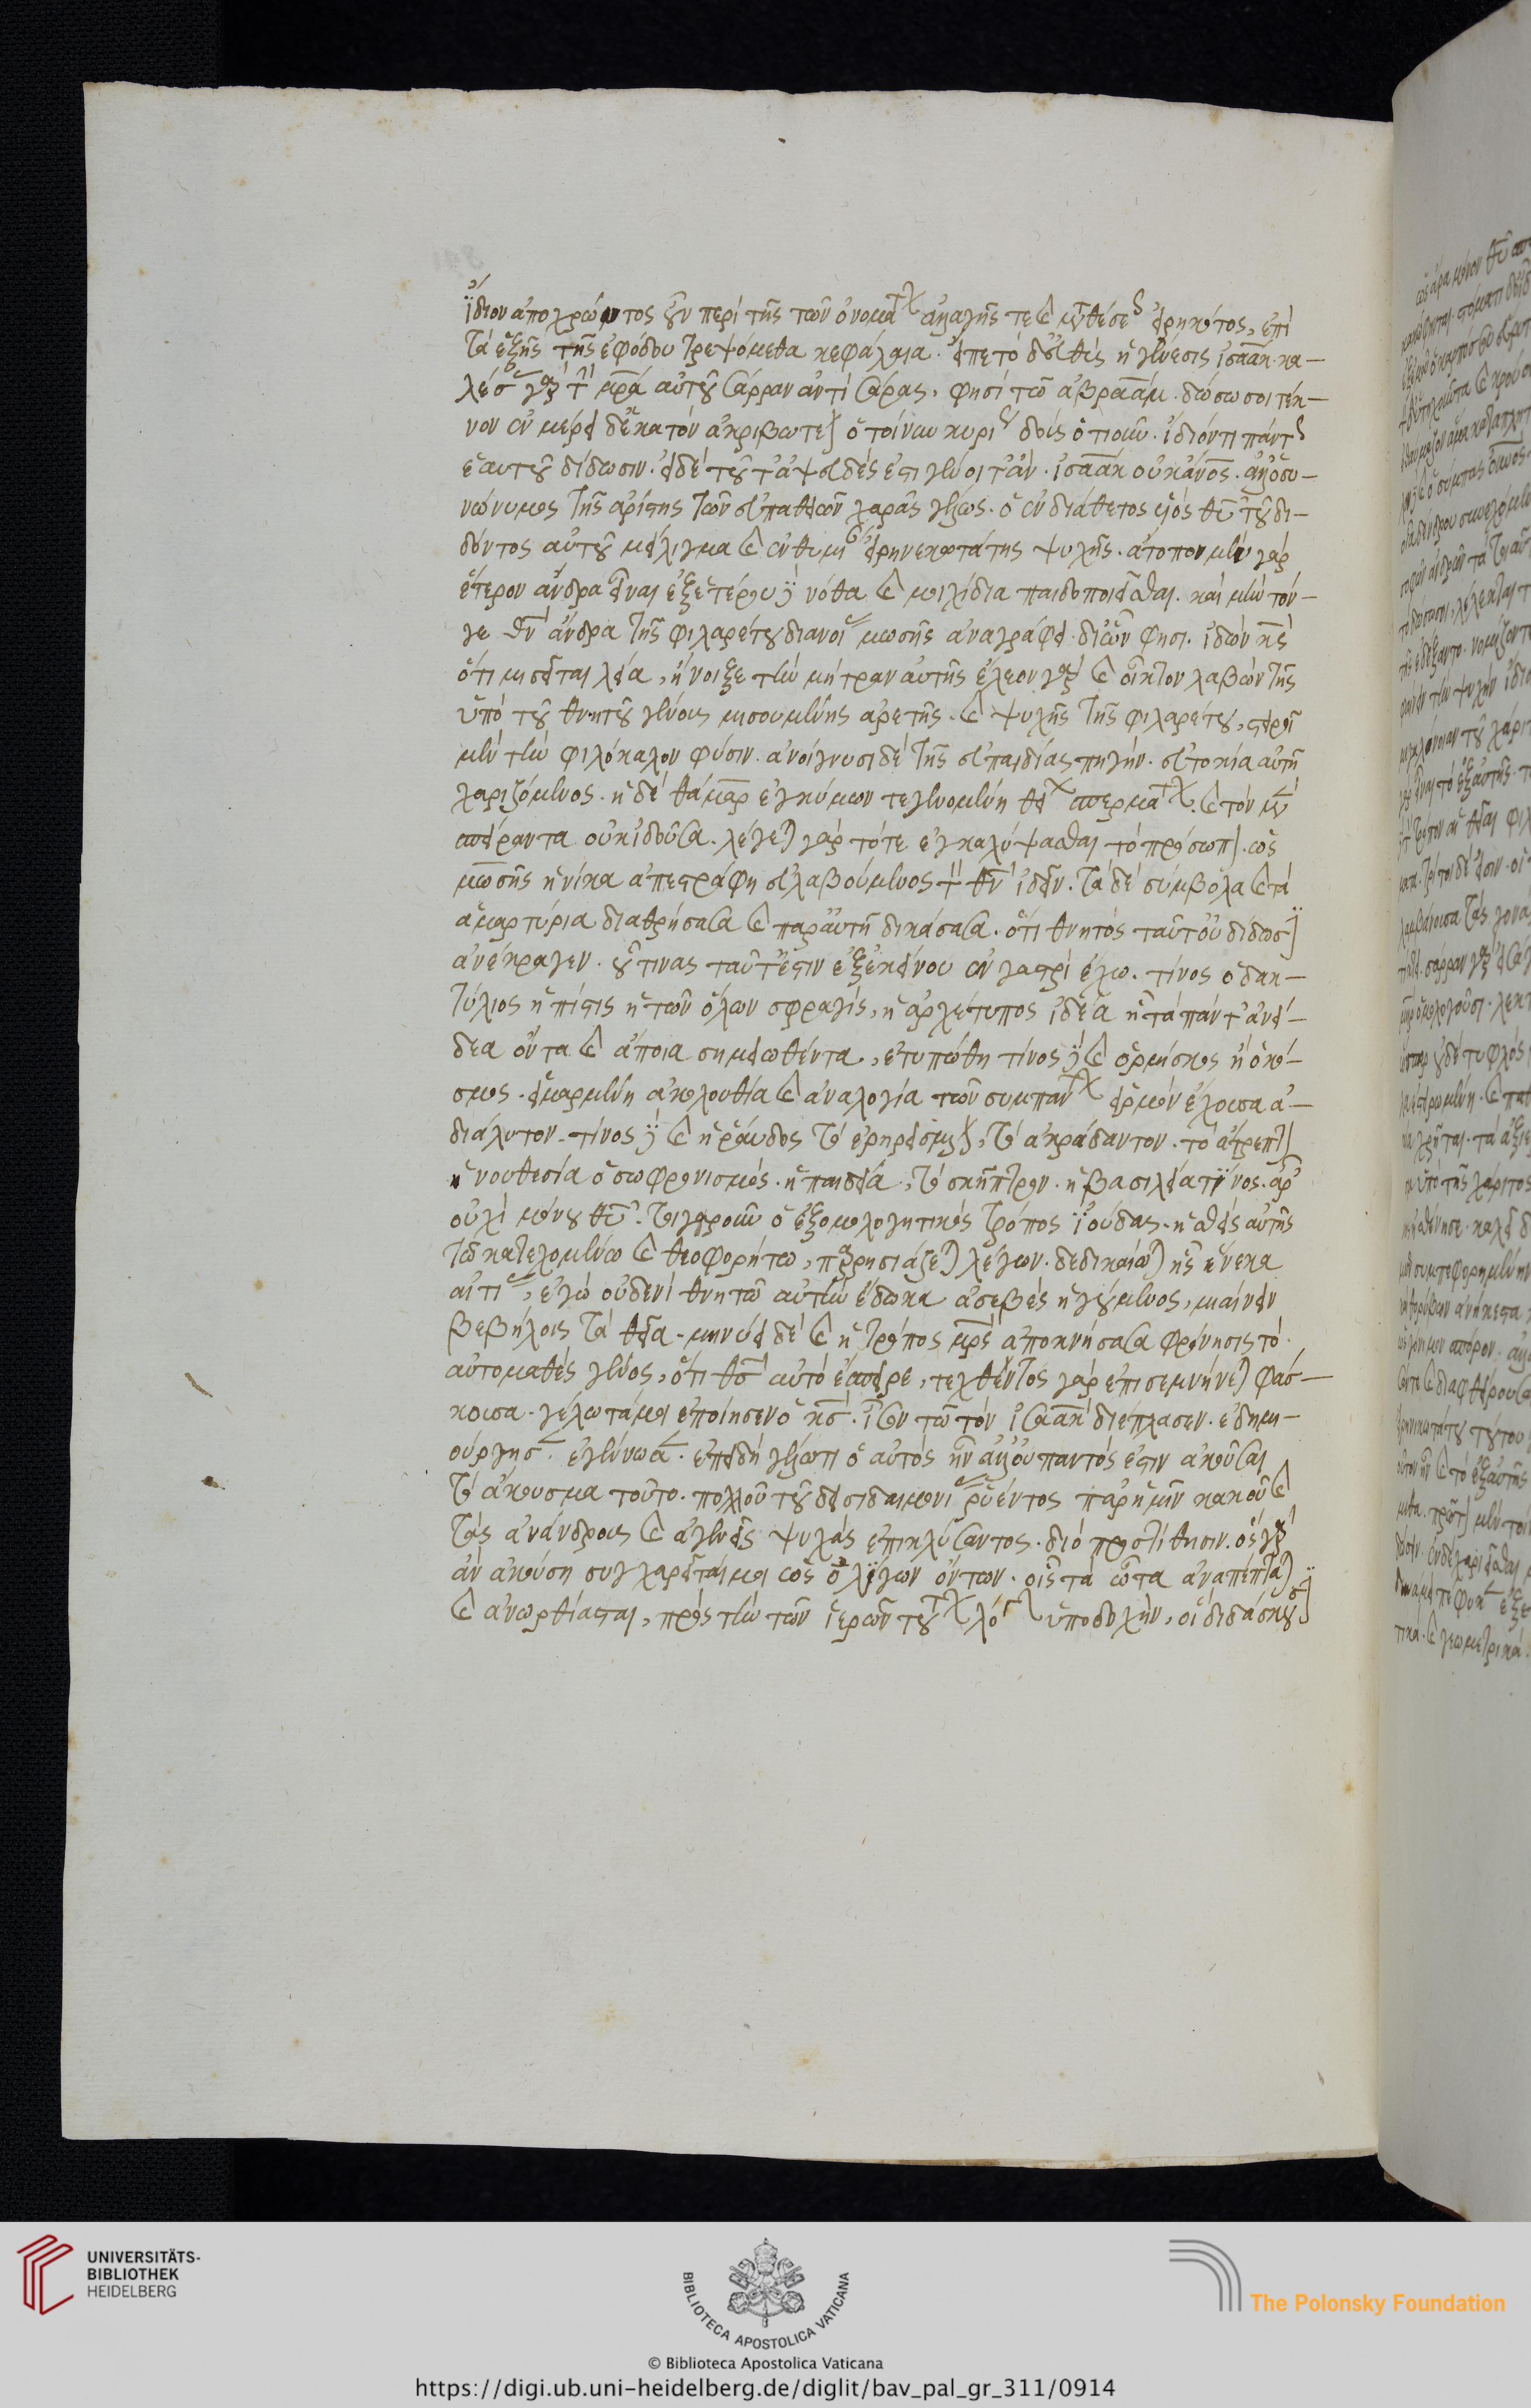 ἴδιον ἀποχρώντος οὖν περὶ τῆς τῶν ὀνομάτων ἀλλαγῆς τε καὶ μεταθέσεως εἰρηκότος, ἐπὶ
τὰ ἑξῆς τῆς ἐφόδου τρεψόμεθα κεφάλαια. εἵπετο δ' εὐθὺς ἡ γένεσις ἰσαάκ. κα-
λέσας γὰρ τὴν μρα αὐτοῦ σάρραν ἀντὶ σάρας, φησὶ τῶ ἀβραάμ. δώσω σοι τέκ-
νον ἐν μέρει δέκατον ἀκριβωτέον ὁ τοίνυν κυρίως δοὺς ὁτιοῦν. ἴδιόν τι πάντως
ἑαυτοῦ δίδωσιν. εἰ δὲ τοῦτ' ἀψευδές ἐστι γένοιτ' ἄν. ἰσαὰκ οὐκ ἄνος. ἀλλ' ὁ συ-
νώνυμος τῆς ἀρίστης τῶν εὐπαθειῶν χαρᾶς γέλως. ὁ ἐνδιάθετος υἱὸς θυ τοῦ δι-
δόντος αὐτοῦ μείλιγμα καὶ ἐνθυμι εἰρηνικωτάτης ψυχῆς. ἄτοπον μὲν γὰρ
ἕτερον ἄνδρα εἶναι ἐξ ἑτέρου δὲ νόθα καὶ μοιχίδια παιδοποιεῖσθαι. καὶ μὴν τόν-
γε θν ἄνδρα τῆς φιλαρέτου διανοίας μωσῆς ἀναγράφει. δι' ὧν φησι. ἰδὼν κς
ὅτι μισεῖται λεία, ἤνοιξε τὴν μήτραν αὐτῆς ἔλεον γὰρ καὶ οἶκτον λαβὼν τῆς
ὑπὸ τοῦ θνητοῦ γένους μισουμένης ἀρετῆς. καὶ ψυχῆς τῆς φιλαρέτου, στειροῖ
μὲν τὴν φιλόκαλον φύσιν. ἀνοίγνυσι δὲ τῆς εὐπαιδίας πηγήν. εὐτοκία αὐτῆ
χαριζόμενος. ἡ δὲ θάμαρ ἐγκύμων τε γενομένη θείων σπερμάτων. καὶ τὸν μὲν
σπείραντα οὐκ ἰδοῦσα. λέγεται γὰρ τότε ἐγκαλύψασθαι τὸ πρόσωπον. ὡς
μωσῆς ἡνίκα ἀπεστράφη εὐλαβούμενος τὸν θν ἰδεῖν. τὰ δὲ σύμβολα καὶ τὰ
ἁμαρτύρια διαθρήσασα καὶ παρ' αὐτῆ δικάσασα. ὅτι θνητὸς ταῦτ' οὐ δίδωσιν
ἀνέκραγεν. οὗτινας ταῦτ' ἔστιν ἐξ ἐκείνου ἐν γαστρὶ ἔχω. τίνος ὁ δακ-
τύλιος ἡ πίστις ἡ τῶν ὅλων σφραγίς, ἡ ἀρχέτυπος ἰδέα ἧ τὰ πάντ' ἀνεί-
δεα ὄντα καὶ ἄποια σημειωθέντα, ἐτυπώθη τίνος δὲ καὶ ὁρμίσκος ἢ ὁ κό-
σμος. εἱμαρμένη ἀκολουθία καὶ ἀναλογία τῶν συμπάντων εἱρμὸν ἔχουσα ἀ-
διάλυτον. τίνος δὲ καὶ ἡ ῥάβδος τὸ ἐρηρεισμένον, τὸ ἀκράδαντον. τὸ ἄτρεπτον
ἡ νουθεσία ὁ σωφρονισμός. ἡ παιδεία, τὸ σκῆπτρον. ἡ βασιλεία τίνος. ἆρ'
οὐχὶ μόνου θυ. τοιγαροῦν ὁ ἐξομολογητικὸς τρόπος ἰούδας. ἡσθεὶς αὐτῆς
τῶ κατεχομένω καὶ θεοφορήτω, παρρησιάζεται λέγων. δεδικαίωται ἧς ἕνεκα
αἰτίας, ἐγὼ οὐδενὶ θνητῶ αὐτὴν ἔδωκα ἀσεβὲς ἡγούμενος, μιαίνειν
βεβήλοις τὰ θεῖα. μηνύει δὲ καὶ ἡ τρόπος μρς ἀποκυήσασα φρόνησις τὸ
αὐτομαθὲς γένος, ὅτι θς αὐτὸ ἔσπειρε, τεχθέντος γὰρ ἐπισεμνήνεται φάσ-
κουσα. γέλωτά μοι ἐποίησεν ὁ κς. ἴσον τῶ τὸν ἰσαὰκ διέπλασεν. ἐδημι-
ούργησεν. ἐγέννησεν. ἐπειδὴ γέλωτι ὁ αὐτὸς ἦν ἀλλ' οὐ παντός ἐστιν ἀκοῦσαι
τὸ ἄκουσμα τοῦτο. πολλοῦ τοῦ δεισιδαιμονίας ῥυέντος παρ' ἡμῖν κακοῦ καὶ
τὰς ἀνάνδρους καὶ ἀγενεῖς ψυχὰς ἐπικλύσαντος. διὸ προστίθησιν. ὃς γὰρ
ἂν ἀκούση συγχαρεῖταί μοι ὡς ὀλίγων ὄντων. οἷς τὰ ὦτα ἀναπέπταται
καὶ ἀνωρθίασται, πρὸς τὴν τῶν ἱερῶν τούτων λόγων ὑποδοχήν, οἳ διδάσκουσιν
UNIVERSITÄTS-
BIBLIOTHEK
HEIDELBERG
BIBLIOTECA APOSTOLICA VATICANA
The Polonsky Foundation
© Biblioteca Apostolica Vaticana
https://digi.ub.uni-heidelberg.de/diglit/bav_pal_gr_311/0914